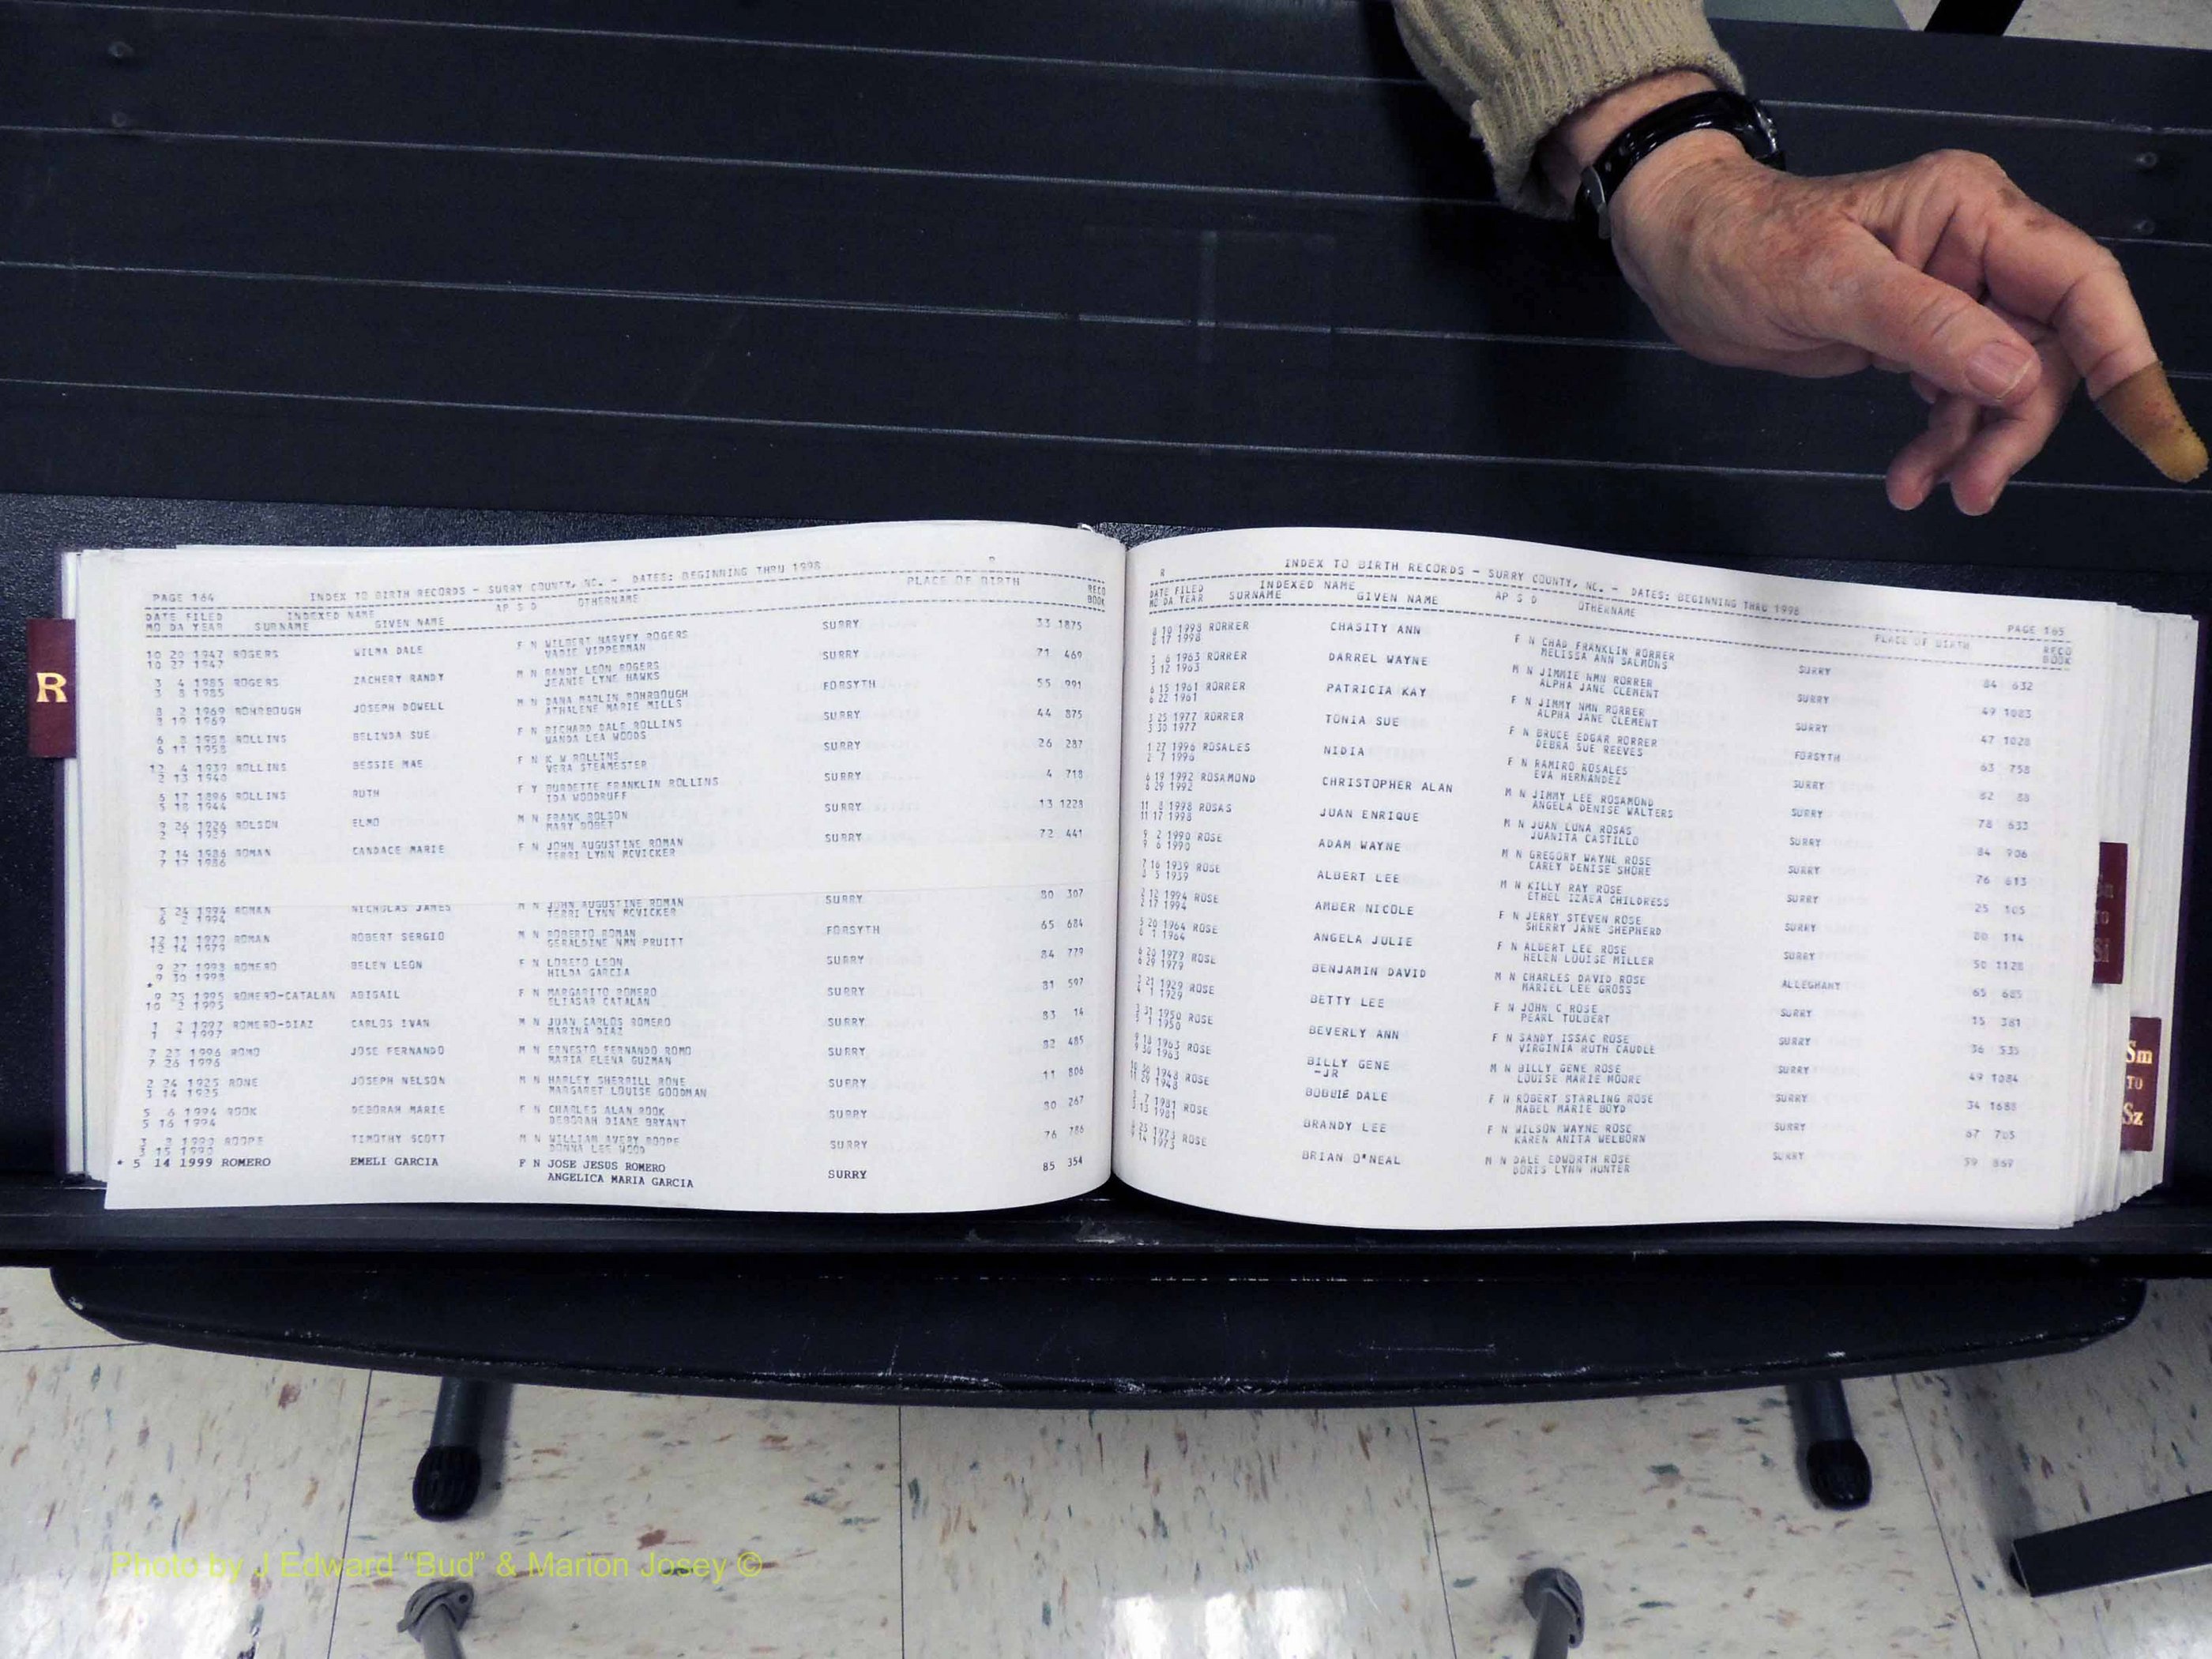 R
PAGE 164 INDEX TO BIRTH RECORDS - SURRY COUNTY, NC. - DATES: BEGINNING THRU 1998 R
DATE FILED INDEXED NAME AP S D OTHERNAME PLACE OF BIRTH RECO
MO DA YEAR SURNAME GIVEN NAME BOOK
10 20 1947 ROGERS WILMA DALE F N WILBERT HARVEY ROGERS SURRY 33 1875
10 27 1947 VIPPERMAN
3 4 1985 ROGERS ZACHERY RANDY M N RANDY LEON ROGERS SURRY 71 469
3 8 1985 JEANIE LYNE HAWKS
8 2 1969 ROHRBOUGH JOSEPH DOWELL M N DANA MARLIN ROHRBOUGH FORSYTH 55 991
8 19 1969 ATHALENE MARIE MILLS
6 8 1958 ROLLINS BELINDA SUE F N RICHARD DALE ROLLINS SURRY 44 875
6 11 1958 WANDA LEA WOODS
12 4 1939 ROLLINS BESSIE MAE F N K W ROLLINS SURRY 26 287
2 13 1940 VERA STEAMESTER
6 17 1896 ROLLINS RUTH F Y BURDETTE FRANKLIN ROLLINS SURRY 4 718
5 18 1944 IDA WOODRUFF
9 26 1926 ROLSON ELMO M N FRANK ROLSON SURRY 13 1228
2 1 1927 MARY
7 14 1986 ROMAN CANDACE MARIE F N JOHN AUGUSTINE ROMAN SURRY 72 441
7 17 1986 TERRI LYNN MCVICKER
5 24 1994 ROMAN NICHOLAS JAMES M N JOHN AUGUSTINE ROMAN SURRY 80 307
6 2 1994 TERRI LYNN MCVICKER
12 11 1979 ROMAN ROBERT SERGIO M N ROBERTO ROMAN FORSYTH 65 684
12 14 1979 GERALDINE NMN PRUITT
9 27 1998 ROMERO BELEN LEON F N LORETO LEON SURRY 84 779
9 30 1998 HILDA GARCIA
9 25 1995 ROMERO-CATALAN ABIGAIL F N MARGARITO ROMERO SURRY 81 597
10 2 1995 ELIASAR CATALAN
1 2 1997 ROMERO-DIAZ CARLOS IVAN M N JUAN CARLOS ROMERO SURRY 83 14
1 1997 MARINA DIAZ
7 23 1996 ROMO JOSE FERNANDO M N ERNESTO FERNANDO ROMO SURRY 82 485
7 26 1996 MARIA ELENA GUZMAN
2 24 1925 RONE JOSEPH NELSON M N HARLEY SHERRILL RONE SURRY 11 806
3 14 1925 MARGARET LOUISE GOODMAN
5 6 1994 ROOK DEBORAH MARIE F N CHARLES ALAN ROOK SURRY 80 267
5 16 1994 DEBORAH DIANE BRYANT
3 2 1990 ROOPE TIMOTHY SCOTT M N WILLIAM AVERY ROOPE SURRY 76 786
3 15 1990 DONNA LEE WOOD
* 5 14 1999 ROMERO EMELI GARCIA F N JOSE JESUS ROMERO SURRY 85 354
ANGELICA MARIA GARCIA
R INDEX TO BIRTH RECORDS - SURRY COUNTY, NC. - DATES: BEGINNING THRU 1998 PAGE 165
DATE FILED INDEXED NAME AP S D OTHERNAME PLACE OF BIRTH RECO
MO DA YEAR SURNAME GIVEN NAME BOOK
8 10 1998 RORRER CHASITY ANN F N CHAD FRANKLIN RORRER SURRY 84 632
8 17 1998 MELISSA ANN SALMONS
3 6 1963 RORRER DARREL WAYNE M N JIMMIE NMN RORRER SURRY 49 1083
3 12 1963 ALPHA JANE CLEMENT
6 15 1961 RORRER PATRICIA KAY F N JIMMY NMN RORRER SURRY 47 1028
6 22 1961 ALPHA JANE CLEMENT
3 25 1977 RORRER TONIA SUE F N BRUCE EDGAR RORRER FORSYTH 63 758
3 30 1977 DEBRA SUE REEVES
1 27 1996 ROSALES NIDIA F N RAMIRO ROSALES SURRY 82 88
2 7 1996 EVA HERNANDEZ
6 19 1992 ROSAMOND CHRISTOPHER ALAN M N JIMMY LEE ROSAMOND SURRY 78 633
6 29 1992 ANGELA DENISE WALTERS
11 8 1998 ROSAS JUAN ENRIQUE M N JUAN LUNA ROSAS SURRY 84 906
11 17 1998 JUANITA CASTILLO
9 2 1990 ROSE ADAM WAYNE M N GREGORY WAYNE ROSE SURRY 76 613
9 6 1990 CAREY DENISE SHORE
7 16 1939 ROSE ALBERT LEE M N KILLY RAY ROSE SURRY 25 105
8 5 1939 ETHEL IZAEA CHILDRESS
2 12 1994 ROSE AMBER NICOLE F N JERRY STEVEN ROSE SURRY 80 114
2 17 1994 SHERRY JANE SHEPHERD
5 20 1964 ROSE ANGELA JULIE F N ALBERT LEE ROSE SURRY 50 1128
6 1 1964 HELEN LOUISE MILLER
6 20 1979 ROSE BENJAMIN DAVID M N CHARLES DAVID ROSE ALLEGHANY 65 685
6 29 1979 MARIEL LEE GROSS
3 21 1929 ROSE BETTY LEE F N JOHN C ROSE SURRY 15 381
4 1 1929 PEARL TULBERT
3 31 1950 ROSE BEVERLY ANN F N SANDY ISSAC ROSE SURRY 36 535
5 1 1950 VIRGINIA RUTH CAUDLE
9 18 1963 ROSE BILLY GENE M N BILLY GENE ROSE SURRY 49 1084
9 30 1963 -JR LOUISE MARIE MOORE
1948 ROSE BOBBIE DALE F N ROBERT STARLING ROSE SURRY 34 1688
11 29 1948 MABEL MARIE BOYD
3 7 1981 ROSE BRANDY LEE F N WILSON WAYNE ROSE SURRY 67 705
3 13 1981 KAREN ANITA WELBORN
8 25 1973 ROSE BRIAN O'NEAL M N DALE EDWORTH ROSE SURRY 59 867
9 14 1973 DORIS LYNN HUNTER
Si
Sm
TO
Sz
Photo by J Edward "Bud" & Marion Josey ©